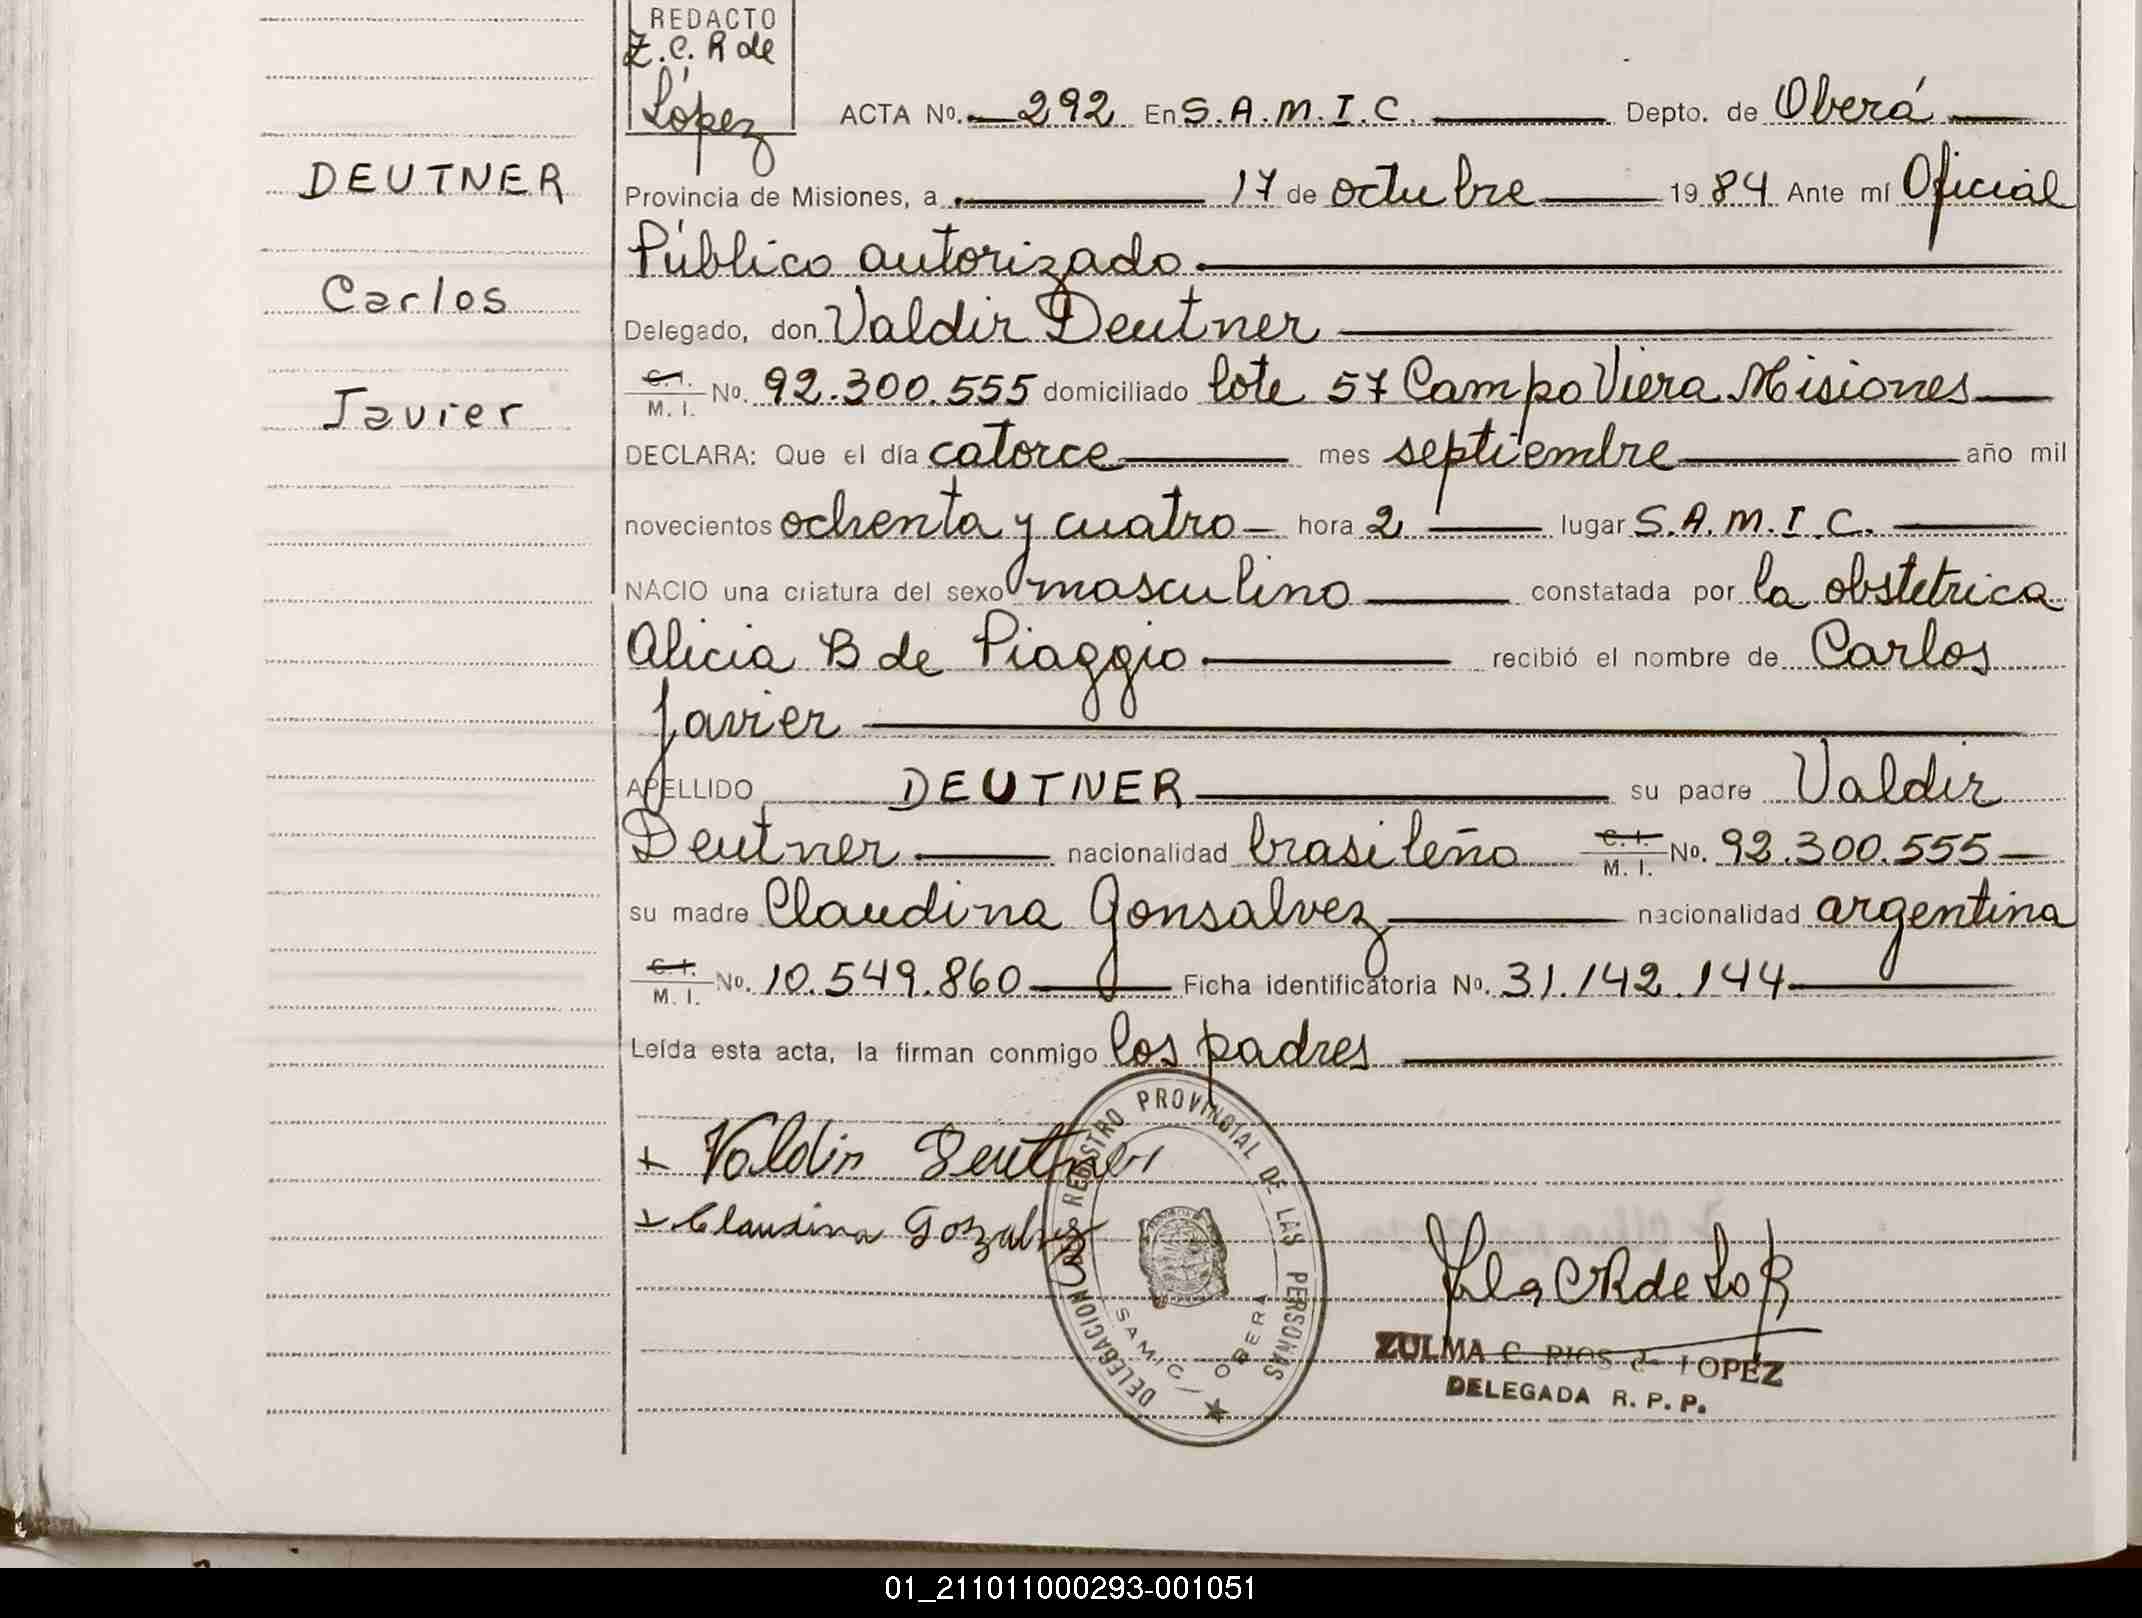 REDACTO
Z. C. R de
López
ACTA No. 292 En S. A. M. I. C. Depto. de Oberá
DEUTNER
Provincia de Misiones, a 17 de octubre 1984 Ante mí Oficial
Público autorizado.
Carlos
Delegado, don Valdir Deutner
Javier
C. I.
M. I. No. 92.300.555 domiciliado lote 57 Campo Viera Misiones
DECLARA: Que el día catorce mes septiembre año mil
novecientos ochenta y cuatro hora 2 lugar S. A. M. I. C.
NACIO una criatura del sexo masculino constatada por la obstetrica
Alicia B de Piaggio recibió el nombre de Carlos
Javier
APELLIDO DEUTNER su padre Valdir
Deutner nacionalidad brasileño C. I.
M. I. No. 92.300.555
su madre Claudina Gonsalvez nacionalidad argentina
C. I.
M. I. No. 10.549.860 Ficha identificatoria No. 31.142.144
Leída esta acta, la firman conmigo los padres
+ Valdir Deutner
+ Claudina Gozalvez
DELEGACION REGISTRO PROVINCIAL DE LAS PERSONAS
SAMIC / OBERA
ZULMA C. RIOS de LOPEZ
DELEGADA R. P. P.
01_211011000293-001051